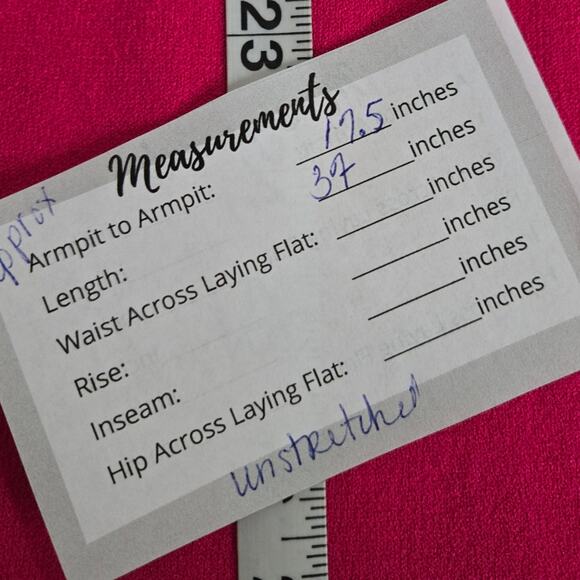 23
Measurements
approx
Armpit to Armpit: 17.5 inches
Length: 37 inches
Waist Across Laying Flat: inches
Rise: inches
Inseam: inches
Hip Across Laying Flat: inches
unstretched